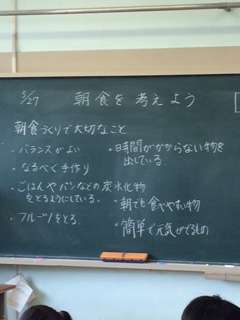 5/27 朝食を考えよう
朝食づくりで大切なこと
・バランスがよい
・なるべく手作り
・ごはんやパンなどの炭水化物
をとるようにしている。
・フルーツをとる
・時間がかからない物を
出している。
・朝でも食べやすい物
・簡単で元気がでるもの